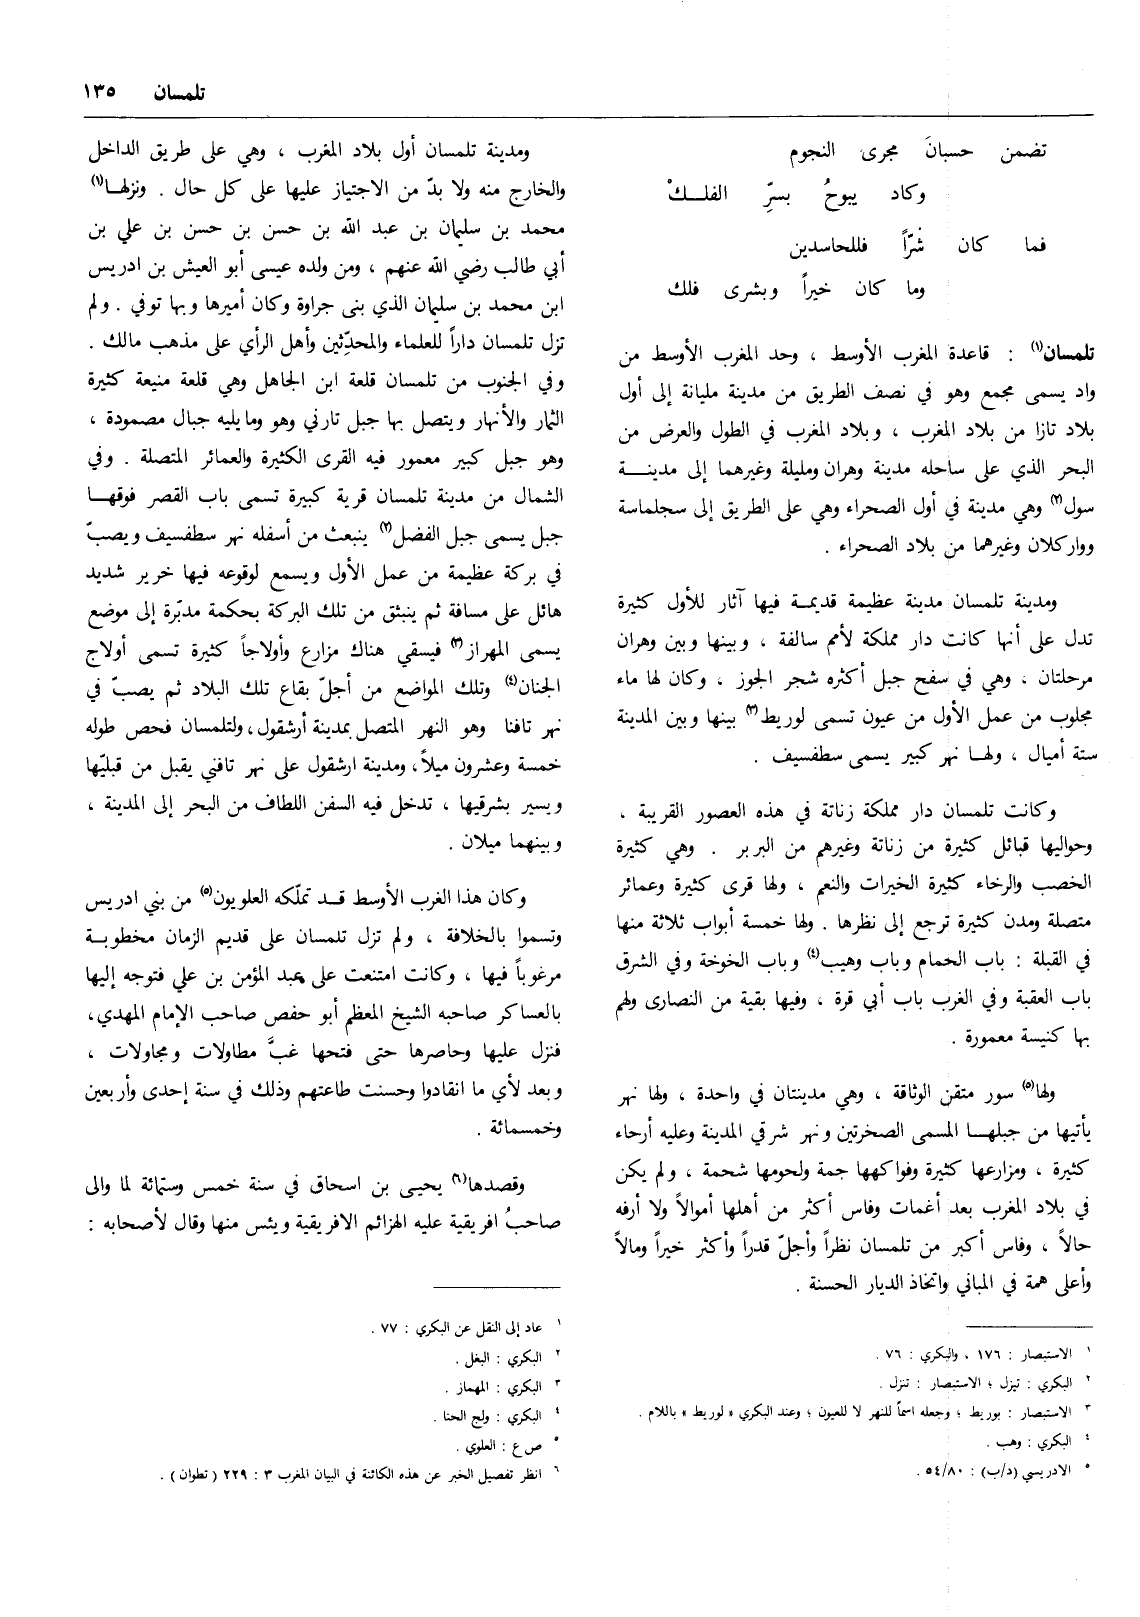 تلمسان ١٣٥
تضمن حسبانَ مجرى النجوم
وكاد يبوحُ بسرِّ الفلـــكْ
فما كان شُرّاً فللحاسدين
وما كان خيراً وبشرى فلك
تلمسان(١) : قاعدة المغرب الأوسط ، وحد المغرب الأوسط من
واد يسمى مجمع وهو في نصف الطريق من مدينة مليانة إلى أول
بلاد تازا من بلاد المغرب ، وبلاد المغرب في الطول والعرض من
البحر الذي على ساحله مدينة وهران ومليلة وغيرهما إلى مدينـــة
سول(٢) وهي مدينة في أول الصحراء وهي على الطريق إلى سجلماسة
وواركلان وغيرهما من بلاد الصحراء .
ومدينة تلمسان مدينة عظيمة قديمـة فيها آثار للأول كثيرة
تدل على أنها كانت دار مملكة لأمم سالفة ، وبينها وبين وهران
مرحلتان ، وهي في سفح جبل أكثره شجر الجوز ، وكان لها ماء
مجلوب من عمل الأول من عيون تسمى لوريط(٣) بينها وبين المدينة
ستة أميال ، ولهـا نهر كبير يسمى سطفسيف .
وكانت تلمسان دار مملكة زناتة في هذه العصور القريبة ،
وحواليها قبائل كثيرة من زناتة وغيرهم من البربر . وهي كثيرة
الخصب والرخاء كثيرة الخيرات والنعم ، ولها قرى كثيرة وعمائر
متصلة ومدن كثيرة ترجع إلى نظرها . ولها خمسة أبواب ثلاثة منها
في القبلة : باب الحمام وباب وهيب(٤) وباب الخوخة وفي الشرق
باب العقبة وفي الغرب باب أبي قرة ، وفيها بقية من النصارى ولهم
بها كنيسة معمورة .
ولها(٥) سور متقن الوثاقة ، وهي مدينتان في واحدة ، ولها نهر
يأتيها من جبلهـا المسمى الصخرتين ونهر شرقي المدينة وعليه أرحاء
كثيرة ، ومزارعها كثيرة وفواكهها جمة ولحومها شحمة ، ولم يكن
في بلاد المغرب بعد أغمات وفاس أكثر من أهلها أموالاً ولا أرفه
حالاً ، وفاس أكبر من تلمسان نظراً وأجلّ قدراً وأكثر خيراً ومالاً
وأعلى همة في المباني واتخاذ الديار الحسنة .
١ الاستبصار : ١٧٦ ، والبكري : ٧٦ .
٢ البكري : تيزل ؛ الاستبصار : تنزل .
٣ الاستبصار : بوريط ؛ وجعله اسماً للنهر لا للعيون ؛ وعند البكري « لوريط » باللام .
٤ البكري : وهب .
٥ الادريسي (د/ب) : ٥٤/٨٠ .
ومدينة تلمسان أول بلاد المغرب ، وهي على طريق الداخل
والخارج منه ولا بدّ من الاجتياز عليها على كل حال . ونزلهـا(١)
محمد بن سليمان بن عبد الله بن حسن بن حسن بن علي بن
أبي طالب رضي الله عنهم ، ومن ولده عيسى أبو العيش بن ادريس
ابن محمد بن سليمان الذي بنى جراوة وكان أميرها وبها توفي . ولم
تزل تلمسان داراً للعلماء والمحدّثين وأهل الرأي على مذهب مالك .
وفي الجنوب من تلمسان قلعة ابن الجاهل وهي قلعة منيعة كثيرة
الثمار والأنهار ويتصل بها جبل تارني وهو وما يليه جبال مصمودة ،
وهو جبل كبير معمور فيه القرى الكثيرة والعمائر المتصلة . وفي
الشمال من مدينة تلمسان قرية كبيرة تسمى باب القصر فوقهـا
جبل يسمى جبل الفضل(٢) ينبعث من أسفله نهر سطفسيف ويصبّ
في بركة عظيمة من عمل الأول ويسمع لوقوعه فيها خرير شديد
هائل على مسافة ثم ينبثق من تلك البركة بحكمة مدبّرة إلى موضع
يسمى المهراز(٣) فيسقي هناك مزارع وأولاجاً كثيرة تسمى أولاج
الجنان(٤) وتلك المواضع من أجلّ بقاع تلك البلاد ثم يصبّ في
نهر تافنا وهو النهر المتصل بمدينة أرشقول، ولتلمسان فحص طوله
خمسة وعشرون ميلاً، ومدينة ارشقول على نهر تافني يقبل من قبليّها
ويسير بشرقيها ، تدخل فيه السفن اللطاف من البحر إلى المدينة ،
وبينهما ميلان .
وكان هذا الغرب الأوسط قـد تملّكه العلويون(٥) من بني ادريس
وتسموا بالخلافة ، ولم تزل تلمسان على قديم الزمان مخطوبـة
مرغوباً فيها ، وكانت امتنعت على عبد المؤمن بن علي فتوجه إليها
بالعساكر صاحبه الشيخ المعظم أبو حفص صاحب الإمام المهدي،
فنزل عليها وحاصرها حتى فتحها غبَّ مطاولات ومجاولات ،
وبعد لأي ما انقادوا وحسنت طاعتهم وذلك في سنة إحدى وأربعين
وخمسمائة .
وقصدها(٦) يحيى بن اسحاق في سنة خمس وستمائة لما والى
صاحبُ افريقية عليه الهزائم الافريقية ويئس منها وقال لأصحابه :
١ عاد إلى النقل عن البكري : ٧٧ .
٢ البكري : البغل .
٣ البكري : المهماز .
٤ البكري : ولج الحنا .
٥ ص ع : العلوي .
٦ انظر تفصيل الخبر عن هذه الكائنة في البيان المغرب ٣ : ٢٢٩ ( تطوان ) .